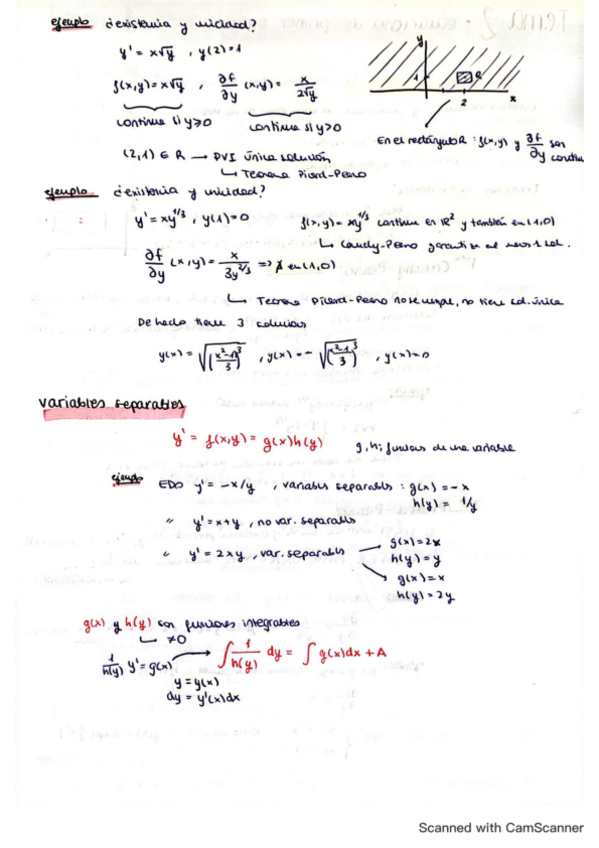 ejemplo ¿existencia y unicidad?
y' = x√y , y(2)=1
f(x,y)=x√y , ∂f/∂y (x,y)= x/(2√y)
continua si y≥0 continua si y>0
y
1
R
2
x
En el rectángulo R: f(x,y) y ∂f/∂y son continu
(2,1) ∈ R → PVI única solución
↳ Teorema Picard-Peano
ejemplo ¿existencia y unicidad?
y' = xy^1/3 , y(1)=0 f(x,y)= xy^1/3 continua en ℝ² y también en (1,0)
↳ Cauchy-Peano garantiza al menos 1 sol.
∂f/∂y (x,y)= x/(3y^2/3) => ∄ en (1,0)
↳ Teorema Picard-Peano no se cumple, no tiene sol. única
De hecho tiene 3 soluciones
y(x) = √((x²-1)/3)³ , y(x) = - √((x²-1)/3)³ , y(x)=0
variables separables
y' = f(x,y) = g(x)h(y) g,h; funcions de una variable
ejemplo EDO y' = -x/y , variables separables : g(x) = -x
h(y) = 1/y
" y' = x+y , no var. separables
" y' = 2xy , var. separables
g(x)=2x
h(y)=y
g(x)=x
h(y)=2y
g(x) y h(y) son funciones integrables
↳ ≠0
1/h(y) y' = g(x) → ∫ 1/h(y) dy = ∫ g(x)dx + A
y = y(x)
dy = y'(x)dx
Scanned with CamScanner